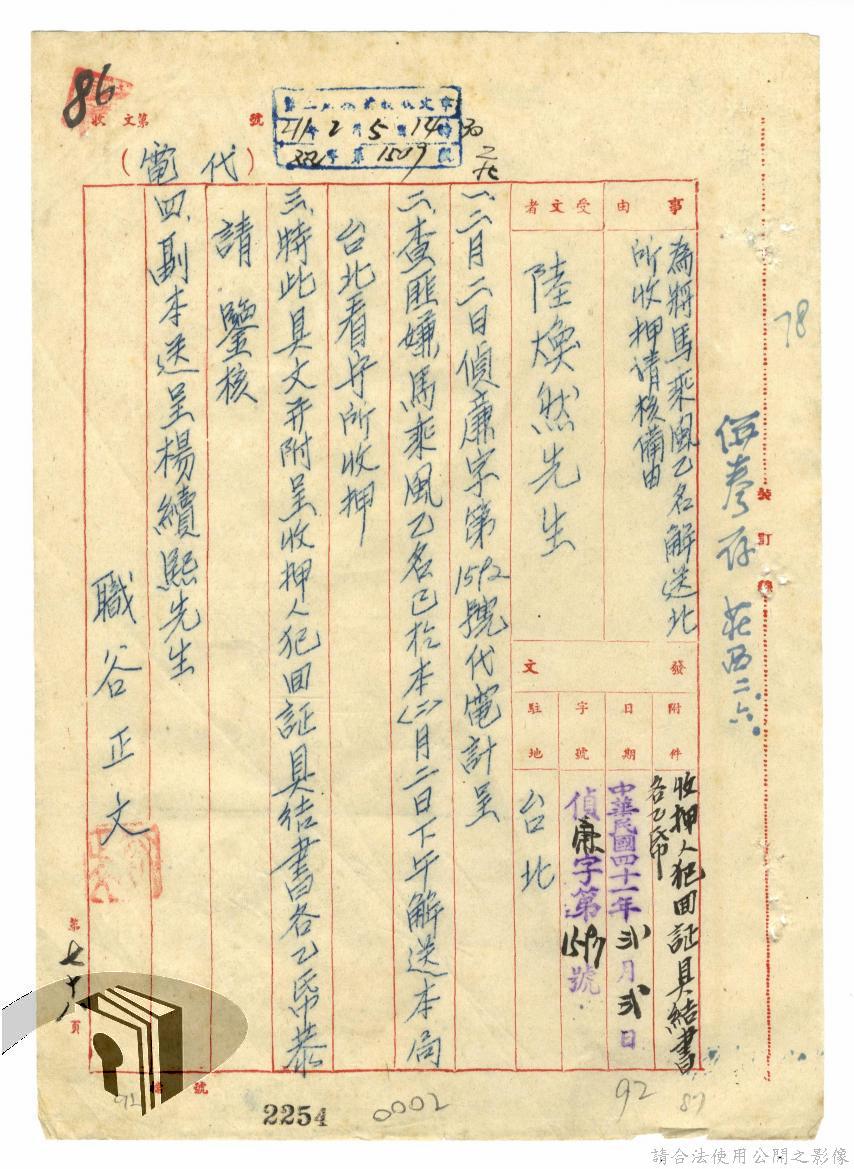 78
裝
訂
線
事由
為將馬乘風乙名解送北
所收押請核備由
受文者
陸煥然先生
發文
附件
收押人犯回証具結書
各乙帋
日期
中華民國四十一年 弍月 弍日
字號
偵廉字第1597號
駐地
台北
一、二月二日偵廉字第1592號代電計呈
二、查匪嫌馬乘風乙名已於本(二)月二日下午解送本局
台北看守所收押
三、特此具文并附呈收押人犯回証具結書各乙帋恭
請 鑒核
四、副本送呈楊續熙先生
職谷正文
(代電)
收文第 號
86
收文章
41年2月5日14時30
字第1509號
第七十八頁
檔號
2254
0002
92
92
87
請合法使用公開之影像